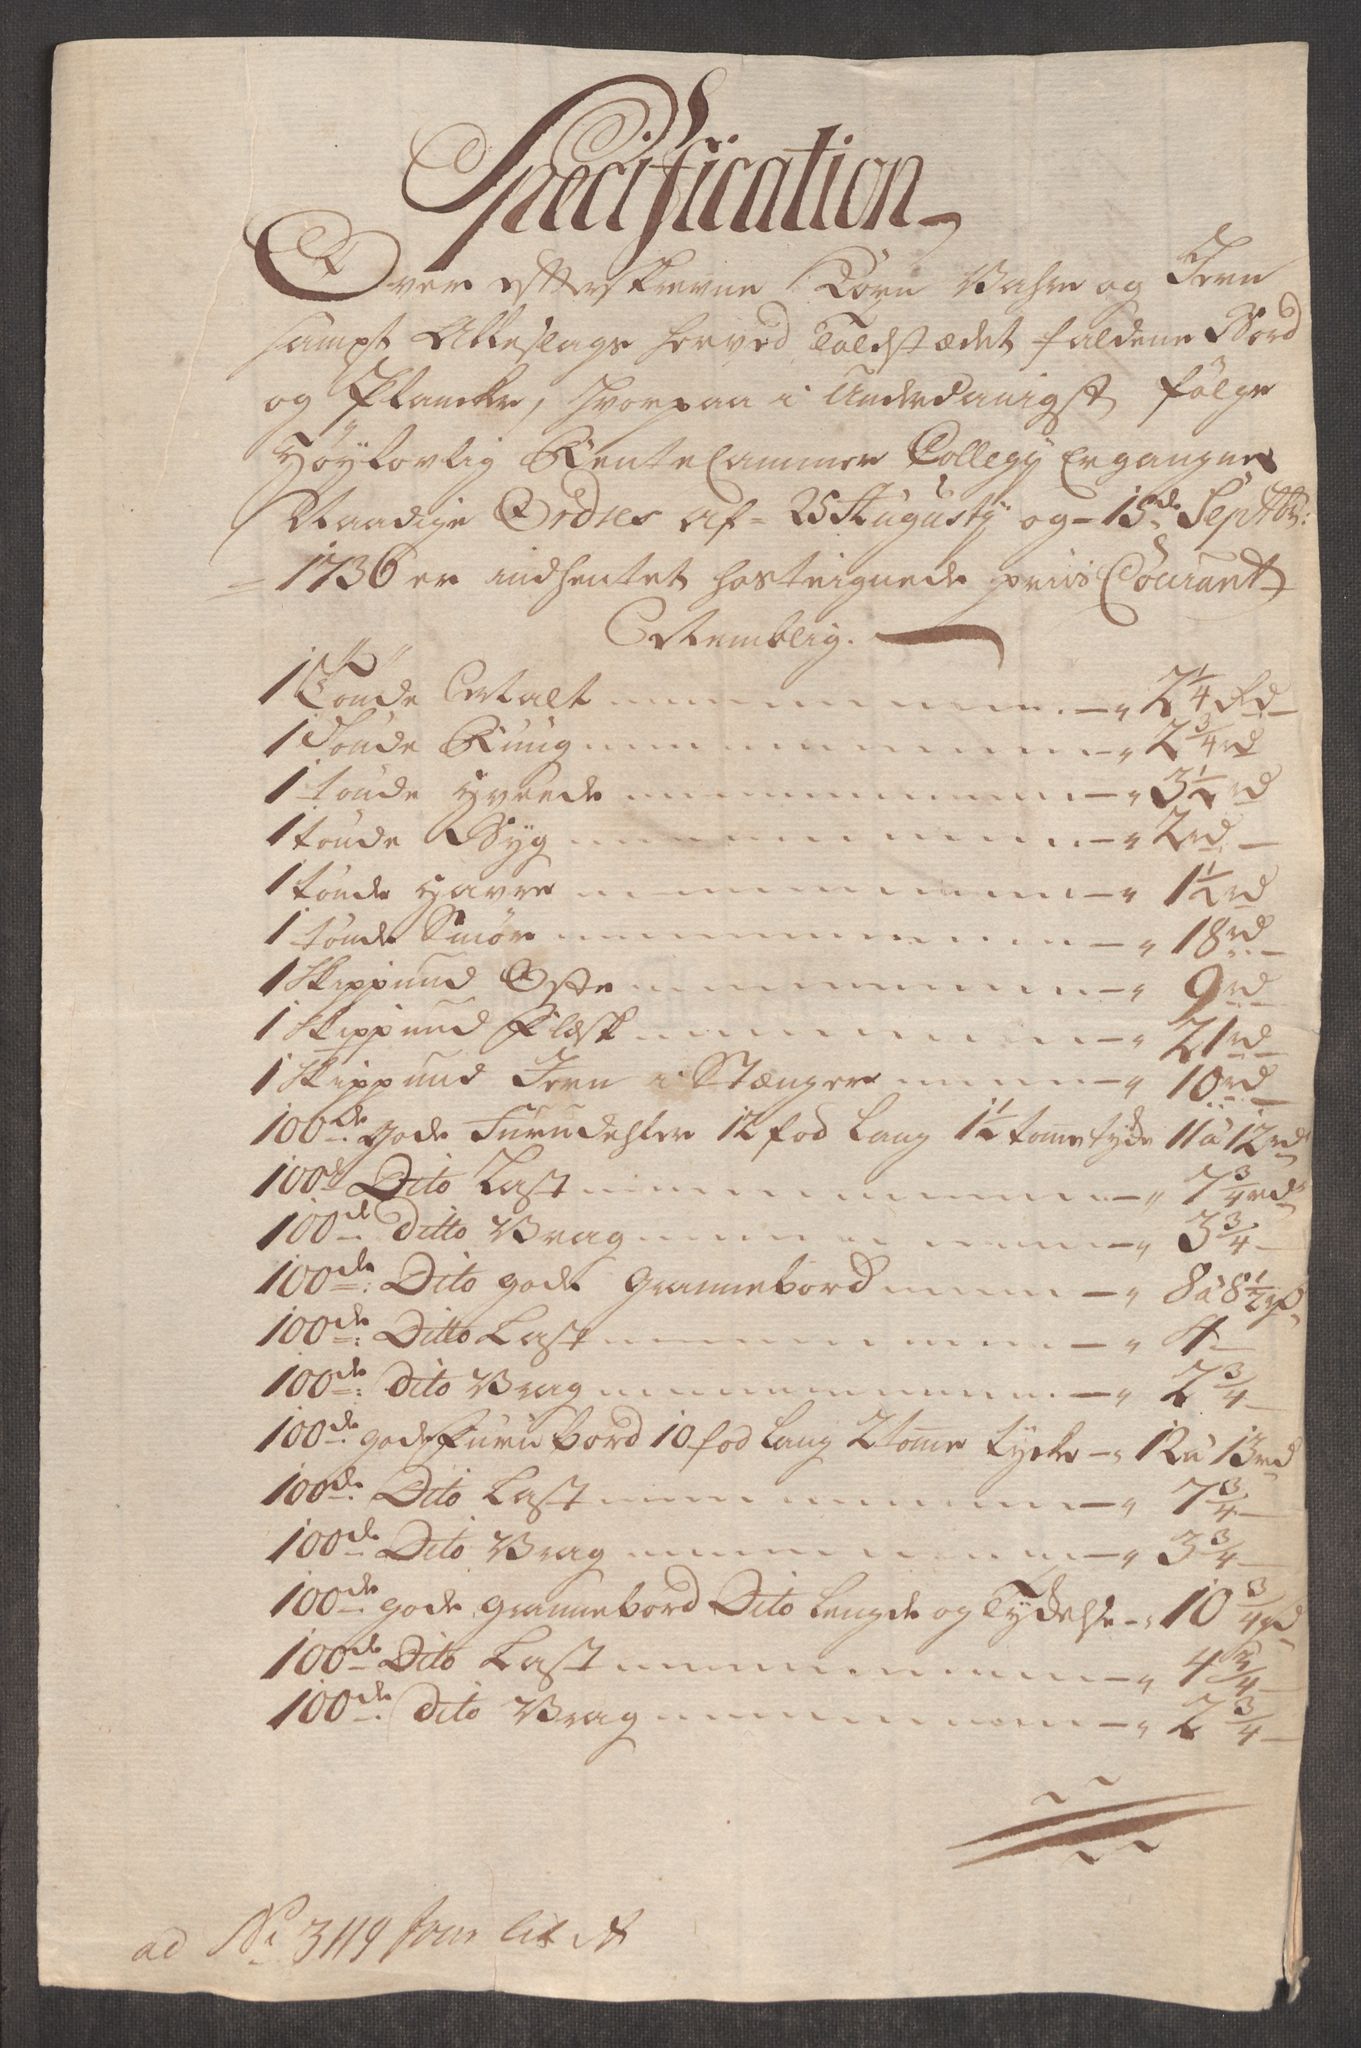 Specification
Over efterskrevne Korn Vahre og Jern
sampt Alleslags herved Toldstædet faldene Bord
og Plancker, hvorpaa i Underdanigst følge
Høylovlig Rente Cammer Collegy Ergangne
Naadige Ordres af 25 Augusty og 15de Septbr:
1736 er indhentet hosteignede priis Courant
Nemblig.
1 Tønde Malt - 2 1/4 Rd
1 Tønde Rug - 2 3/4 rd
1 tønde Hveede - 3 1/2 rd
1 tønde Byg - 2 rd
1 tønde Havre - 1 1/2 rd
1 tønde Smør - 18 rd
1 Skippund Oste - 9 rd
1 Skippund Flæsk - 21 rd
1 Skippund Jern i Stænger - 10 rd
100de gode Furudehler 12 fod lang 1 1/2 tome tyde 11 a 12 rd
100de Dito Last - 7 3/4 rd
100de Ditto Vrag - 3 3/4
100de: Dito gode Grannebord - 8 a 8 1/2 rd
100de: Ditto Last - 4
100de: Dito Vrag - 2 3/4
100de gode Furu bord 10 fod lang 2 tome tycke - 12 a 13 rd
100de Dito Last - 7 3/4
100de Dito Vrag - 3 3/4
100de gode grannebord Dito lengde og Tydelse - 10 3/4 rd
100de Dito Last - 4 3/4
100de Dito Vrag - 2 3/4
ad No 3119 Jour lit A